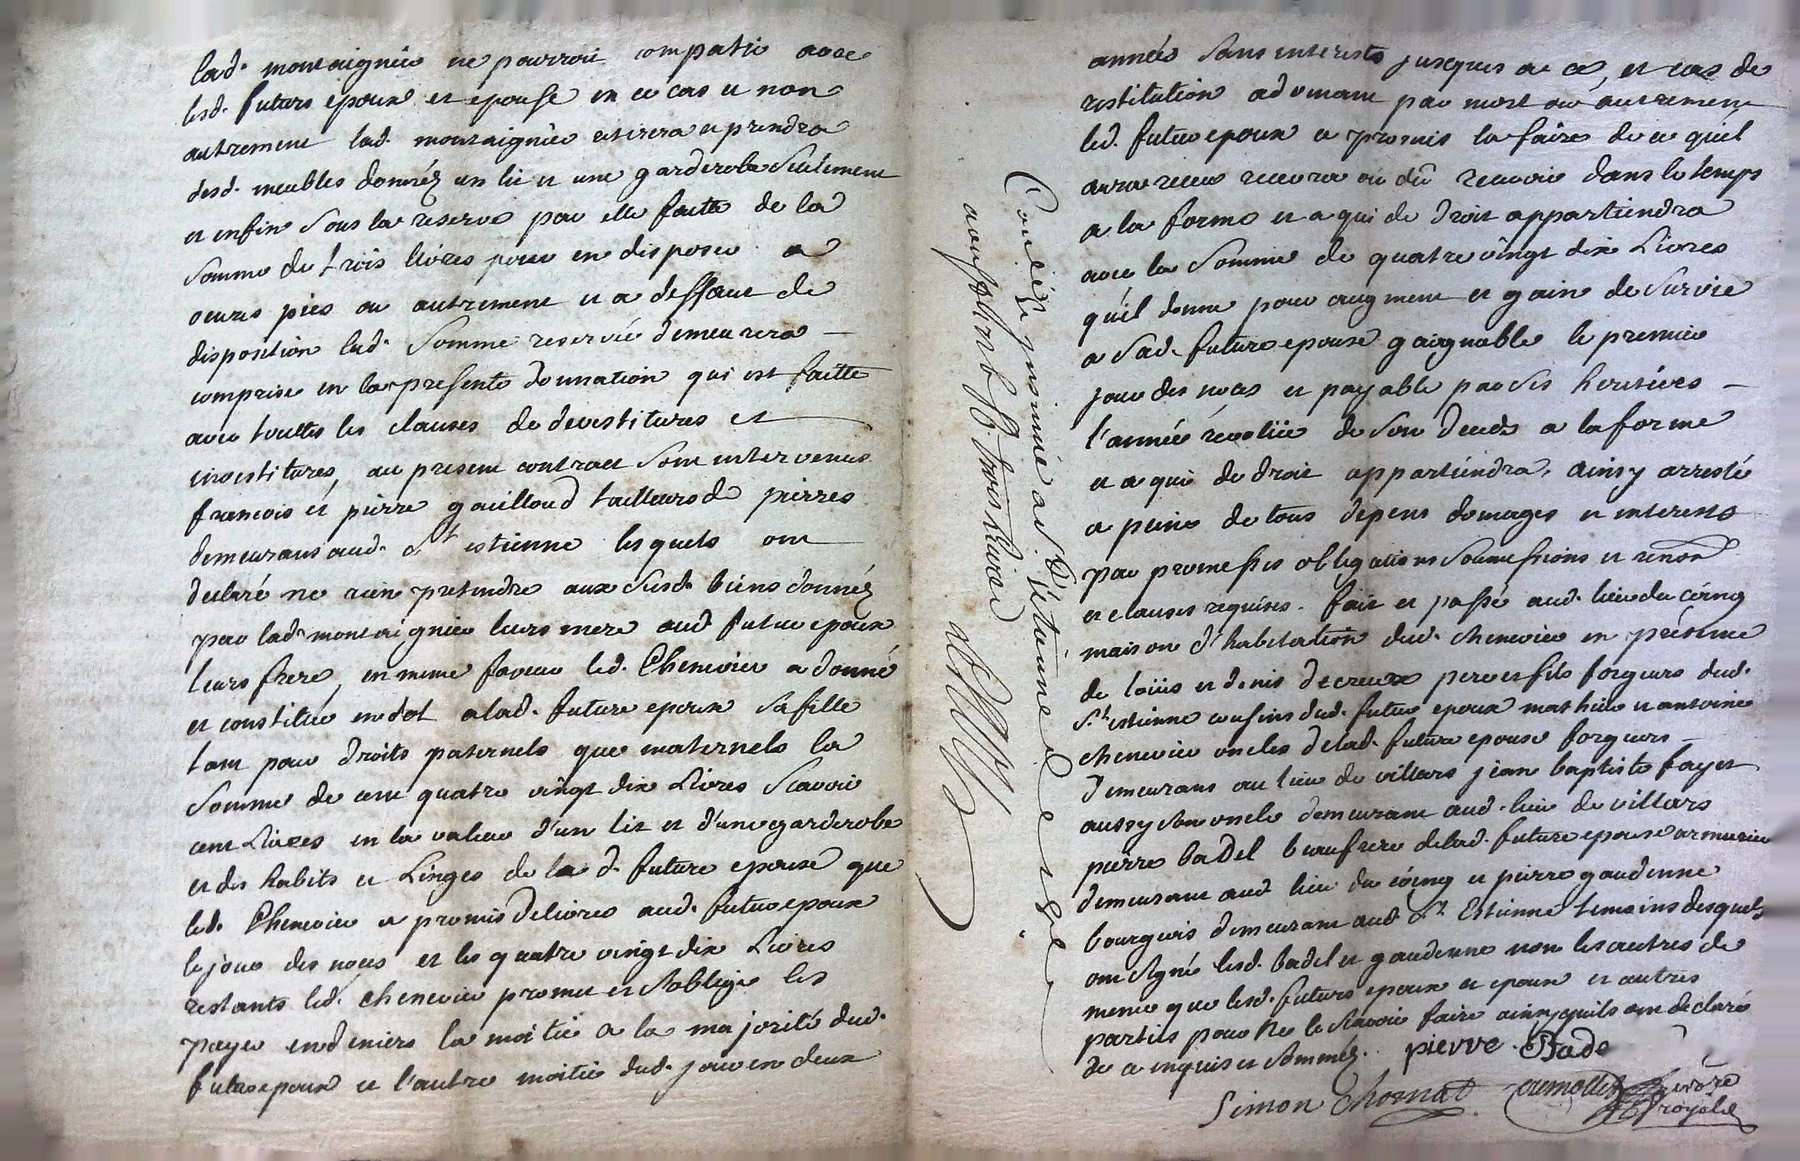 lad. montaignée ne pourroit compatir avec
lesd. futurs epoux et epouse en ce cas et non
autrement lad. montaignée retirera et prendra
desd. meubles donnéz un lit et une garderobe seulement
et enfin sous la reserve par elle faitte de la
somme de trois livres pour en disposer a
oeuvres pies ou autrement et a deffaut de
disposition lad. somme reservée demeurera
comprise en la presente donnation qui est faitte
avec touttes les clauses de devestitures et
investitures, au present contract sont intervenus
françois et pierre gouilloud tailleurs de pierres
demeurans aud. St estienne lesquels ont
declaré ne rien pretendre aux susd. biens donnéz
par lad. montaignée leurs mere aud futur epoux
leurs frere, en meme faveur led. Chenevier a donné
et constitué en dot a lad. future epouse sa fille
tant pour droits paternels que maternels la
somme de cent quatre vingt dix Livres Scavoir
cent Livres en la valeur d'un lit et d'une garderobe
et des habits et Linges de la d. future epouse que
led. Chenevier a promis delivrer aud. futur epoux
le jour des noces et les quatre vingt dix Livres
restants led. chenevier promet et s'oblige les
payer en deniers la moitié a la majorité dud.
futur epoux et l'autre moitié dud. jour en deux
Conté justinié a St Etienne le
aoust
années sans interests jusques a ce, et cas de
restitution advenant par mort ou autrement
led. futur epoux a promis la faire de ce qu'il
aura receu recevra ou dû recevoir dans le temps
a la forme et a qui de droit appartiendra
avec la somme de quatre vingt dix Livres
qu'il donne pour augment et gain de survie
a sad. future epouse gaignable le premier
jour des noces et payable par ses heritiers
l'année révoluë de son deceds a la forme
et a qui de droit appartiendra, ainsy arresté
a peine de tous depens domages et interests
par promesses obligations soumissions et renon
et clauses requises. fait et passé aud. lieu du coing
maison d'habitation dud. chenevier en présence
de loüis et denis decreux pere et fils forgeurs dud.
St. estienne cousins dud. futur epoux mathieu et antoine
chenevier oncles de lad. future epouse forgeurs
demeurans au lieu de villars jean baptiste fayet
aussy son oncle demeurant aud. lieu de villars
pierre badel beaufrere de lad. future epouse armurier
demeurant aud lieu du coing et pierre gaudenne
bourgeois demeurant aud St. Estienne temoins desquels
ont signé lesd. badel et gaudenne non les autres de
meme que lesd. futurs epoux et epouse et autres
parties pour ne le scavoir faire ainsy qu'ils ont declaré
de ce enquis et sommés. pierre Bade
Simon Thomat royale